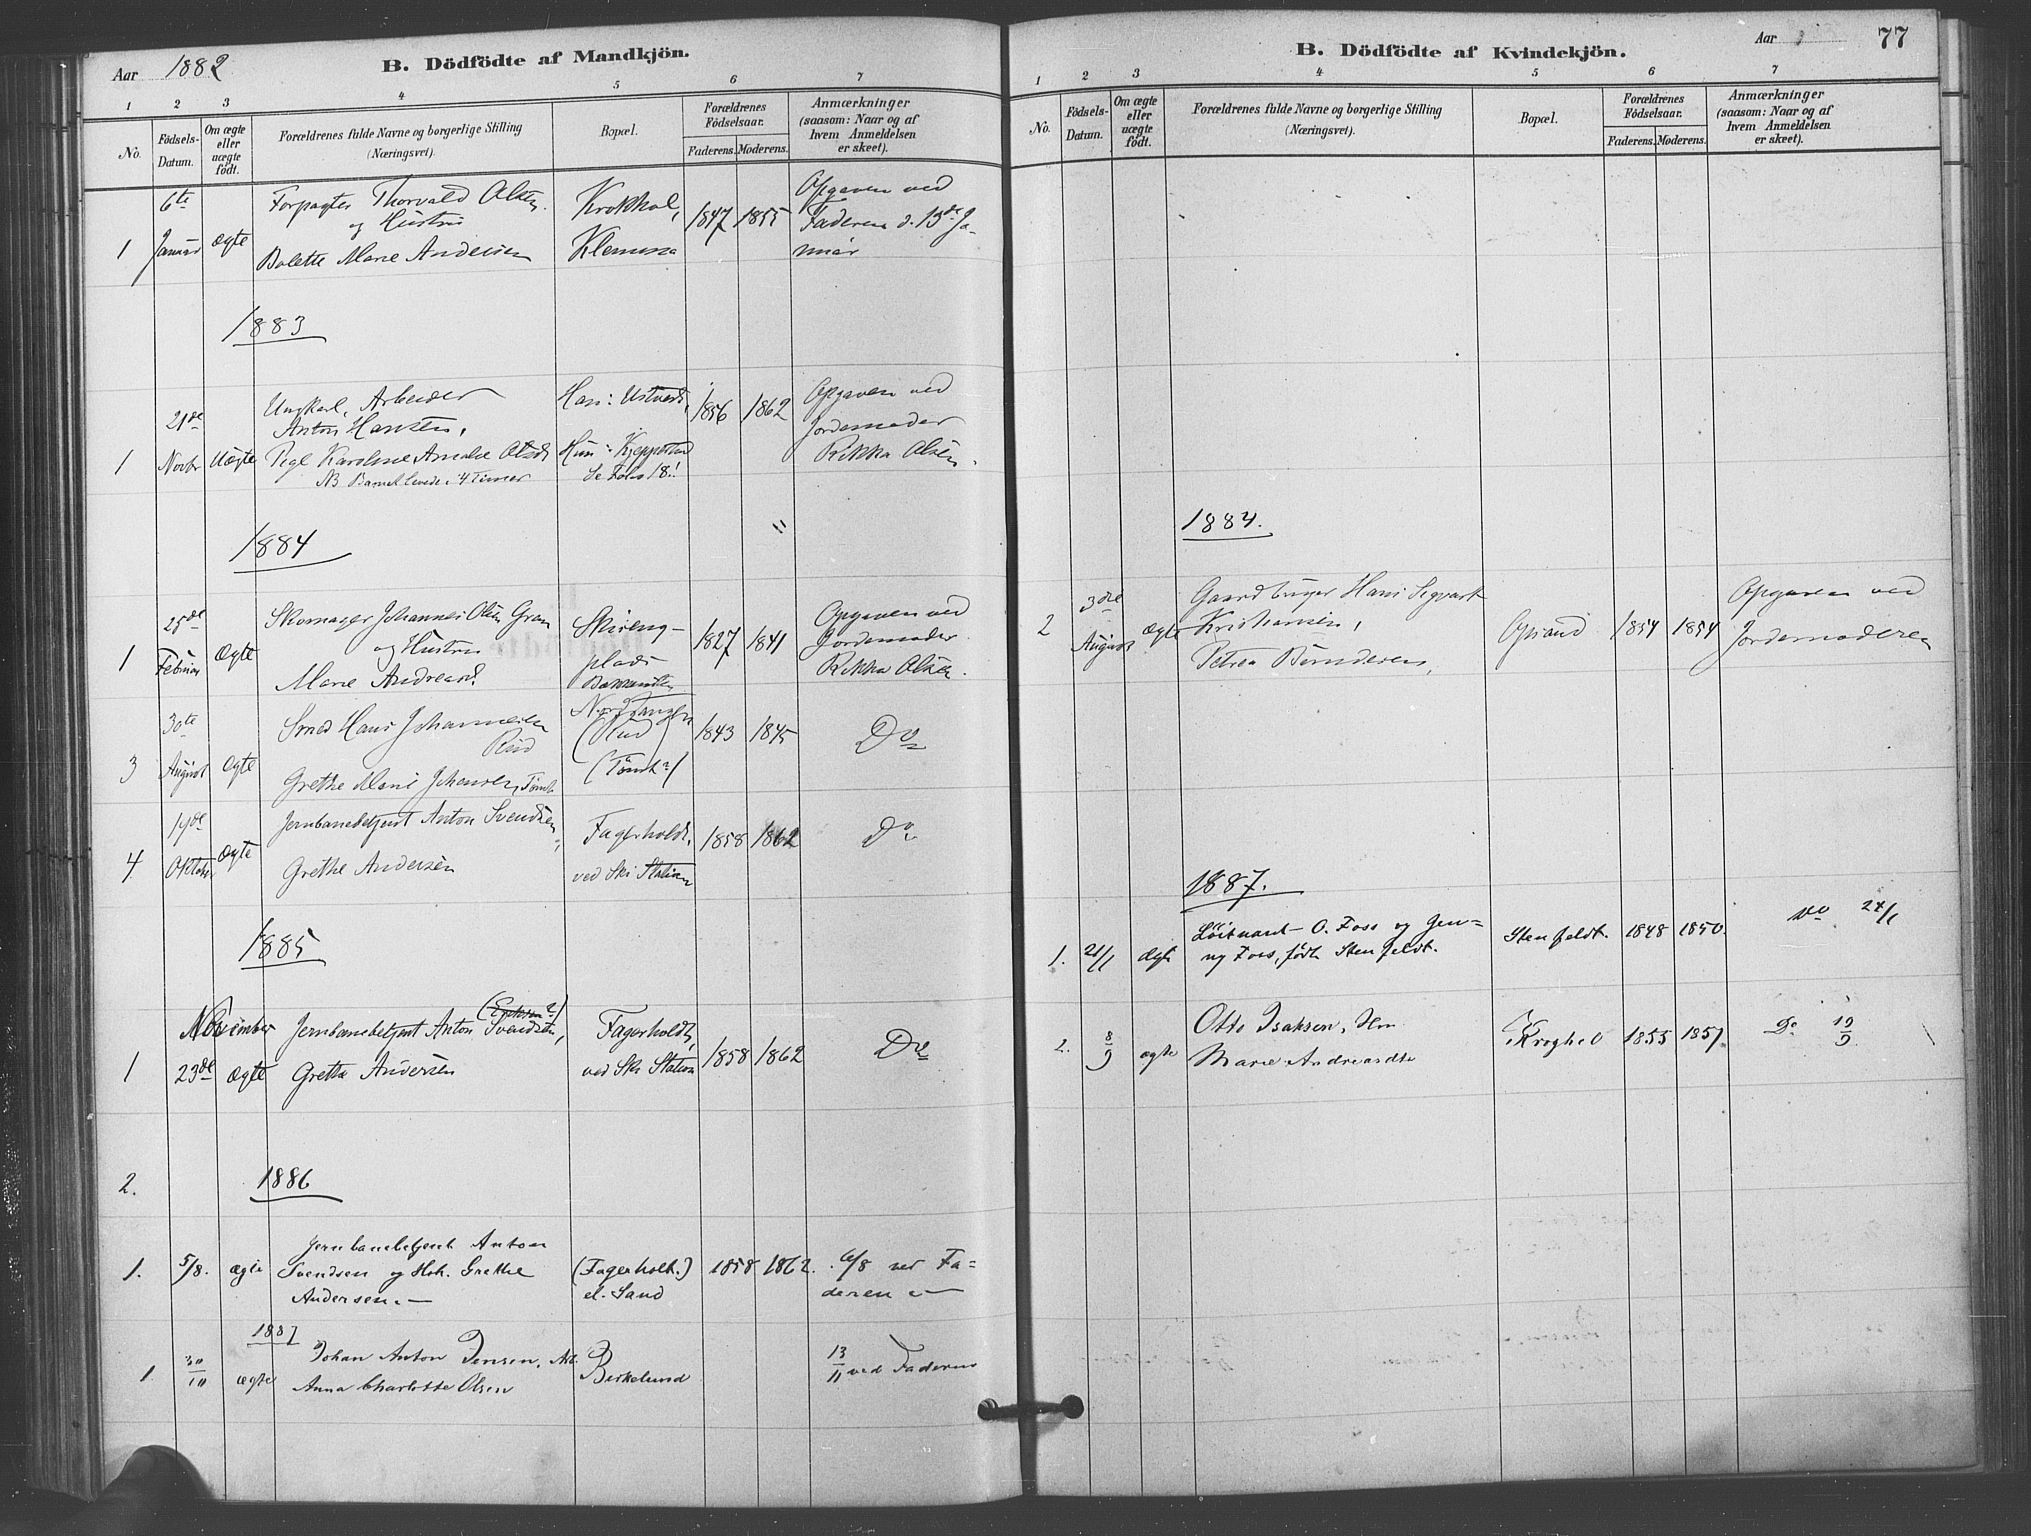 Aar 1882
B. Dödfödte af Mandkjön.
1 2 3 4 5 6 7
No.
Födsels-Datum.
Om ægte eller uægte födt.
Forældrenes fulde Navne og borgerlige Stilling
(Næringsvei).
Bopæl.
Forældrenes Födselsaar.
Faderens. Moderens.
Anmærkninger
(saasom: Naar og af
hvem Anmeldelsen
er skeet).
6te Forpagter Thorvald Olsen Krokhol, 1847 1855 Opgaven ved
og Hustru Faderen d. 13de Ja-
1 Januar ægte Bolette Marie Andersen Klemmsa nuar
1883
21de Ungkarl, Arbeider Han: 1856 1862 Opgaven ved
Anton Hansen, Jordemoder
1 Novbr Uægte Pige Karoline Amalie Hun: Rikka Olsen.
NB Barnet levede 4 Timer Se Folio 18!
1884
25de Skomager Johannes Olsen Gran Skieng- 1827 1841 Opgaven ved
og Hustru plads Jordemoder
1 Februar Ægte Marie Andreasd. Rikka Olsen.
30te Smed Hans Johannesen (Rud) 1843 1845 Do
Rud
3 August Ægte Grethe Marie Johansen, Tomt (Tomt?)
Jernbanebetjent Anton Svendsen, Fagerholdt, 1858 1862 Do
4 Oktober Ægte Grethe Andersen ved Ski Station
1885
November Jernbanebetjent Anton Svendsen, Fagerholdt, 1858 1862 Do
1 23de Ægte Grethe Andersen ved Ski Station
2. 1886
Jernbanebetjent Anton
1. 5/8. ægte Svendsen og H. Grethe (Fagerholt.) 1858 1862. 6/8 ved Fa-
Andersen. el. Sand deren
1887
1. 30/10 ægte Johan Anton Jensen, Birkelund 13/11 ved Faderen
Anna Charlotte Olsen
Aar 77
B. Dödfödte af Kvindekjön.
1 2 3 4 5 6 7
No.
Födsels-Datum.
Om ægte eller uægte födt.
Forældrenes fulde Navne og borgerlige Stilling
(Næringsvei).
Bopæl.
Forældrenes Födselsaar.
Faderens. Moderens.
Anmærkninger
(saasom: Naar og af
hvem Anmeldelsen
er skeet).
1884.
3die Gaardbruger Hans Sigvart Opgaven ved
2 August Ægte Kristiansen, Opsand 1854 1854 Jordemoderen
Petrea
1887.
Löitnant O. Foss og Jen- Stenfeldt. 1848 1850. Do 24/1
1. 21/1 ægte ny Foss, født Stenfeldt.
Otto Isaksen, Kroghol 1855 1857 Do 19/9
2. 8/9 ægte Marie Andreasdtr